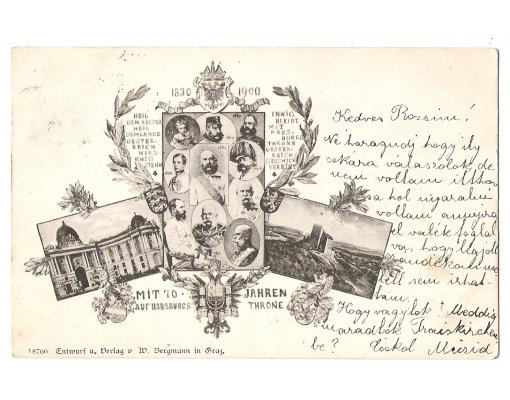 1830 1900
HEIL
DEM KAISER
HEIL
DEM LANDE
OESTER-
REICH
WIRD
EWIG
BESTEHN
INNIG
BLEIBT
MIT
HABS-
BURGS
THRONE
OESTER-
REICHS
GESCHICK
VEREINT
MIT 70 JAHREN
AUF HABSBURGS THRONE
18760 Entwurf u. Verlag v. W. Bergmann in Graz.
Kedves Rózsim!
Ne haragudj hogy ily
sokára válaszolok de
nem voltam itthon
sa hol nyaralni
voltam annyira
el valék foglal
va, hogy legjobb
sem irhat
tam.
Hogy vagytok? Meddig
maradtok Traiskirchen
be? Csókol Marid